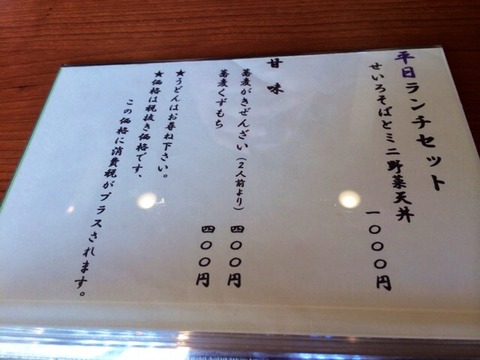 平日ランチセット
せいろそばとミニ野菜天丼 一〇〇〇円
甘味
蕎麦がきぜんざい(2人前より) 四〇〇円
蕎麦くずもち 四〇〇円
★うどんはお尋ね下さい。
★価格は税抜き価格です、
この価格に消費税がプラスされます。